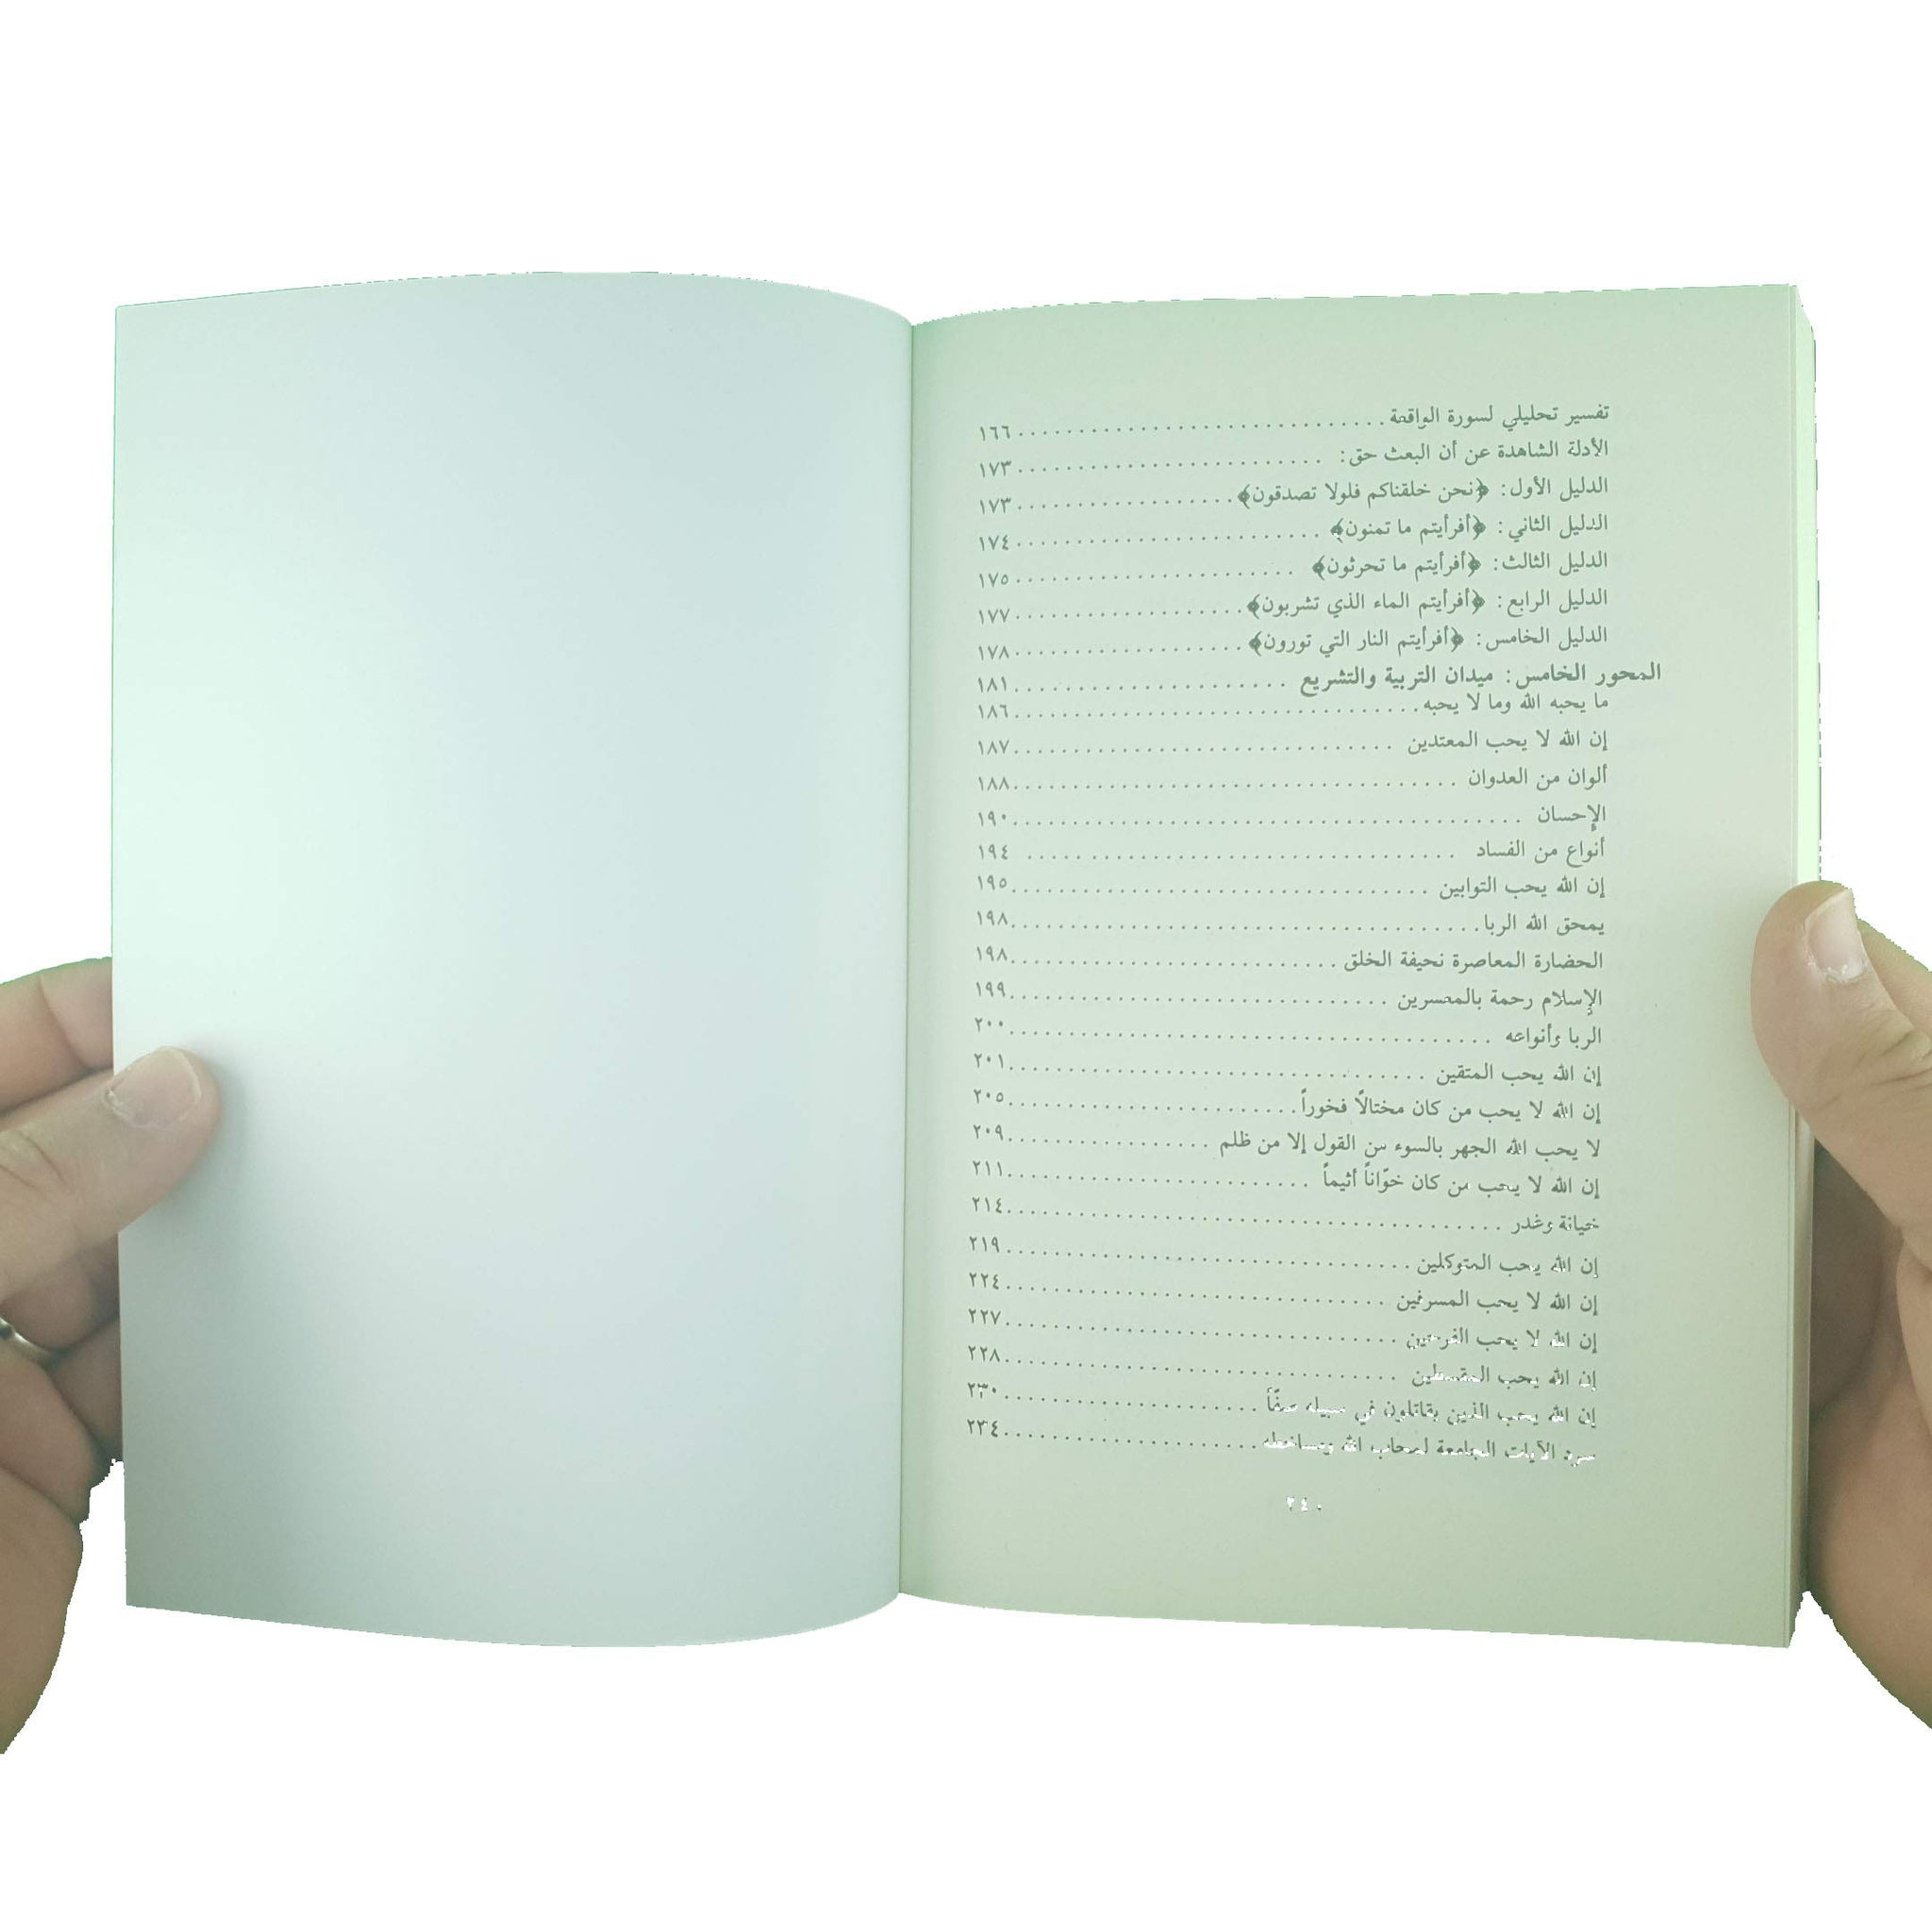 تفسير تحليلي لسورة الواقعة ................................ ١٦٦
الأدلة الشاهدة عن أن البعث حق: .......................... ١٧٣
الدليل الأول: ﴿نحن خلقناكم فلولا تصدقون﴾ .................. ١٧٣
الدليل الثاني: ﴿أفرأيتم ما تمنون﴾ .......................... ١٧٤
الدليل الثالث: ﴿أفرأيتم ما تحرثون﴾ ........................ ١٧٥
الدليل الرابع: ﴿أفرأيتم الماء الذي تشربون﴾ .................. ١٧٧
الدليل الخامس: ﴿أفرأيتم النار التي تورون﴾ .................. ١٧٨
المحور الخامس: ميدان التربية والتشريع ........................ ١٨١
ما يحبه الله وما لا يحبه .................................. ١٨٦
إن الله لا يحب المعتدين ................................ ١٨٧
ألوان من العدوان ...................................... ١٨٨
الإحسان ............................................ ١٩٠
أنواع من الفساد ...................................... ١٩٤
إن الله يحب التوابين .................................. ١٩٥
يمحق الله الربا ........................................ ١٩٨
الحضارة المعاصرة نحيفة الخلق ............................ ١٩٨
الإسلام رحمة بالمعسرين ................................ ١٩٩
الربا وأنواعه .......................................... ٢٠٠
إن الله يحب المتقين .................................... ٢٠١
إن الله لا يحب من كان مختالًا فخوراً ........................ ٢٠٥
لا يحب الله الجهر بالسوء من القول إلا من ظلم .................. ٢٠٩
إن الله لا يحب من كان خوّاناً أثيماً .......................... ٢١١
خيانة وغدر .......................................... ٢١٤
إن الله يحب المتوكلين .................................. ٢١٩
إن الله لا يحب المسرفين ................................ ٢٢٤
إن الله لا يحب الفرحين ................................ ٢٢٧
إن الله يحب المقسطين .................................. ٢٢٨
إن الله يحب الذين يقاتلون في سبيله صفّاً .................... ٢٣٠
سرد الآيات الجامعة لمحاب الله ومساخطه .................... ٢٣٤
٢٤٠